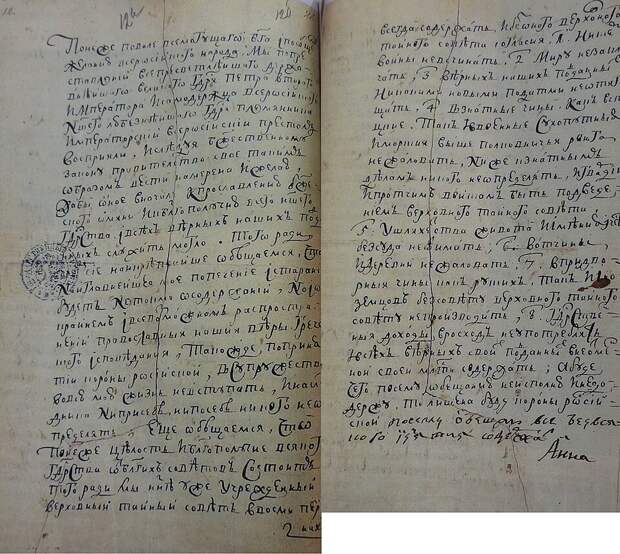 12
126
Понеже по воле всемогущаго бга, ипообще
желанию всеросиского народа, мы попре
ставлении всепресветлеишаго держа
внеишаго великого гдря петра второго
императора исамодержца всеросиского
ншего любезнеишаго гдря племянника
императорскии всеросискии престолъ
восприяли, иследуя бжественному
закону правителство свое такимъ
образомъ вести намерена ижелаю,
дабы оное вначале кпрославлению бже
ского имяни икблагополучию всего ншего
гдрства ивсехъ верныхъ нашихъ под
ныхъ служить могло. того ради
сие наикрепчаише обещаемся, что
наиглавнеишее мое попечение истарание
будетъ нетокмо осодержании, нои
краинемъ ивсевозможномъ распростра
нении православные нашия веры грече
исповедания, такожде, поприня
тии короны росииской, всупружество
вовсю мою жизнь невступать, инасле
дника ниприсебе, нипосебе никого неоп
ределять, еще обещаемся, что
понеже целость иблагополучие всякого
гдрства отблгихъ советовъ состоитъ
того ради мы ныне уже учрежденный
верховный тайный советъ ввосми пер
всегда содержать, ибезоного верховного
тайного совета согласия, 1, нискемъ
войны невсчинать, 2, миру незаклю
чать, 3, верныхъ нашихъ подданныхъ
никакими новыми податми неотяго
щать, 4, взнатные чины, какъ вста
цкие, такъ ивоенные сухопутные
иморские выше полковничья ранга
нежаловать, ниже кзнатнымъ
деламъ никого неопределять, игвардии
ипротчимъ воискам быть подведе
нием верховного тайного совета.
5. ушляхетства живота иимения ичести
безсуда неотимать, 6, вотчины,
идеревни нежаловать, 7, впридво
рные чины какъ руских, такъ ино
земцовъ безсовету верховного тайного
совету непроизводить, 8, гдрстве
нные доходы, врасходъ неупотреблять
ивсехъ верныхъ свои поданныхъ внеотме
нной своеи милсти содержать, абуде
чего посему обещанию неисполню инедо
держу, то лишена буду короны росии
ской посему обещаю все безвся
кого изятия содержать
Анна